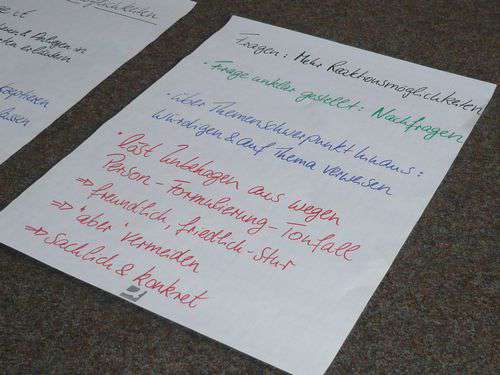 Fragen: Mehr Reaktionsmöglichkeiten
• Frage unklar gestellt: Nachfragen
• über Themenschwerpunkt hinaus:
würdigen & auf Thema verweisen
• löst Unbehagen aus wegen
Person - Formulierung - Tonfall
⇒ freundlich, friedlich - stur
⇒ "aber" vermeiden
⇒ sachlich & konkret